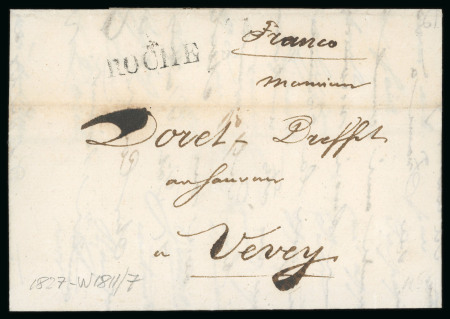 ROCHE
Franco
Monsieur
Doret - Dreffet
a Vevey
1827-W1811/7